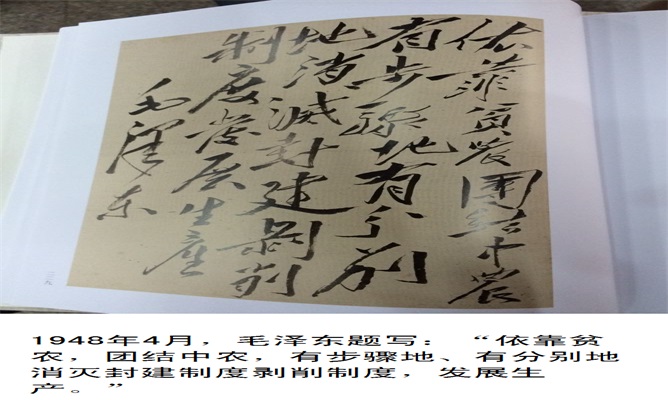 依靠貧農團結中農
有步驟地有分別
地消滅封建剝削
制度發展生產
毛澤东
1948年4月，毛泽东题写：“依靠贫
农，团结中农，有步骤地、有分别地
消灭封建制度剥削制度，发展生
产。”